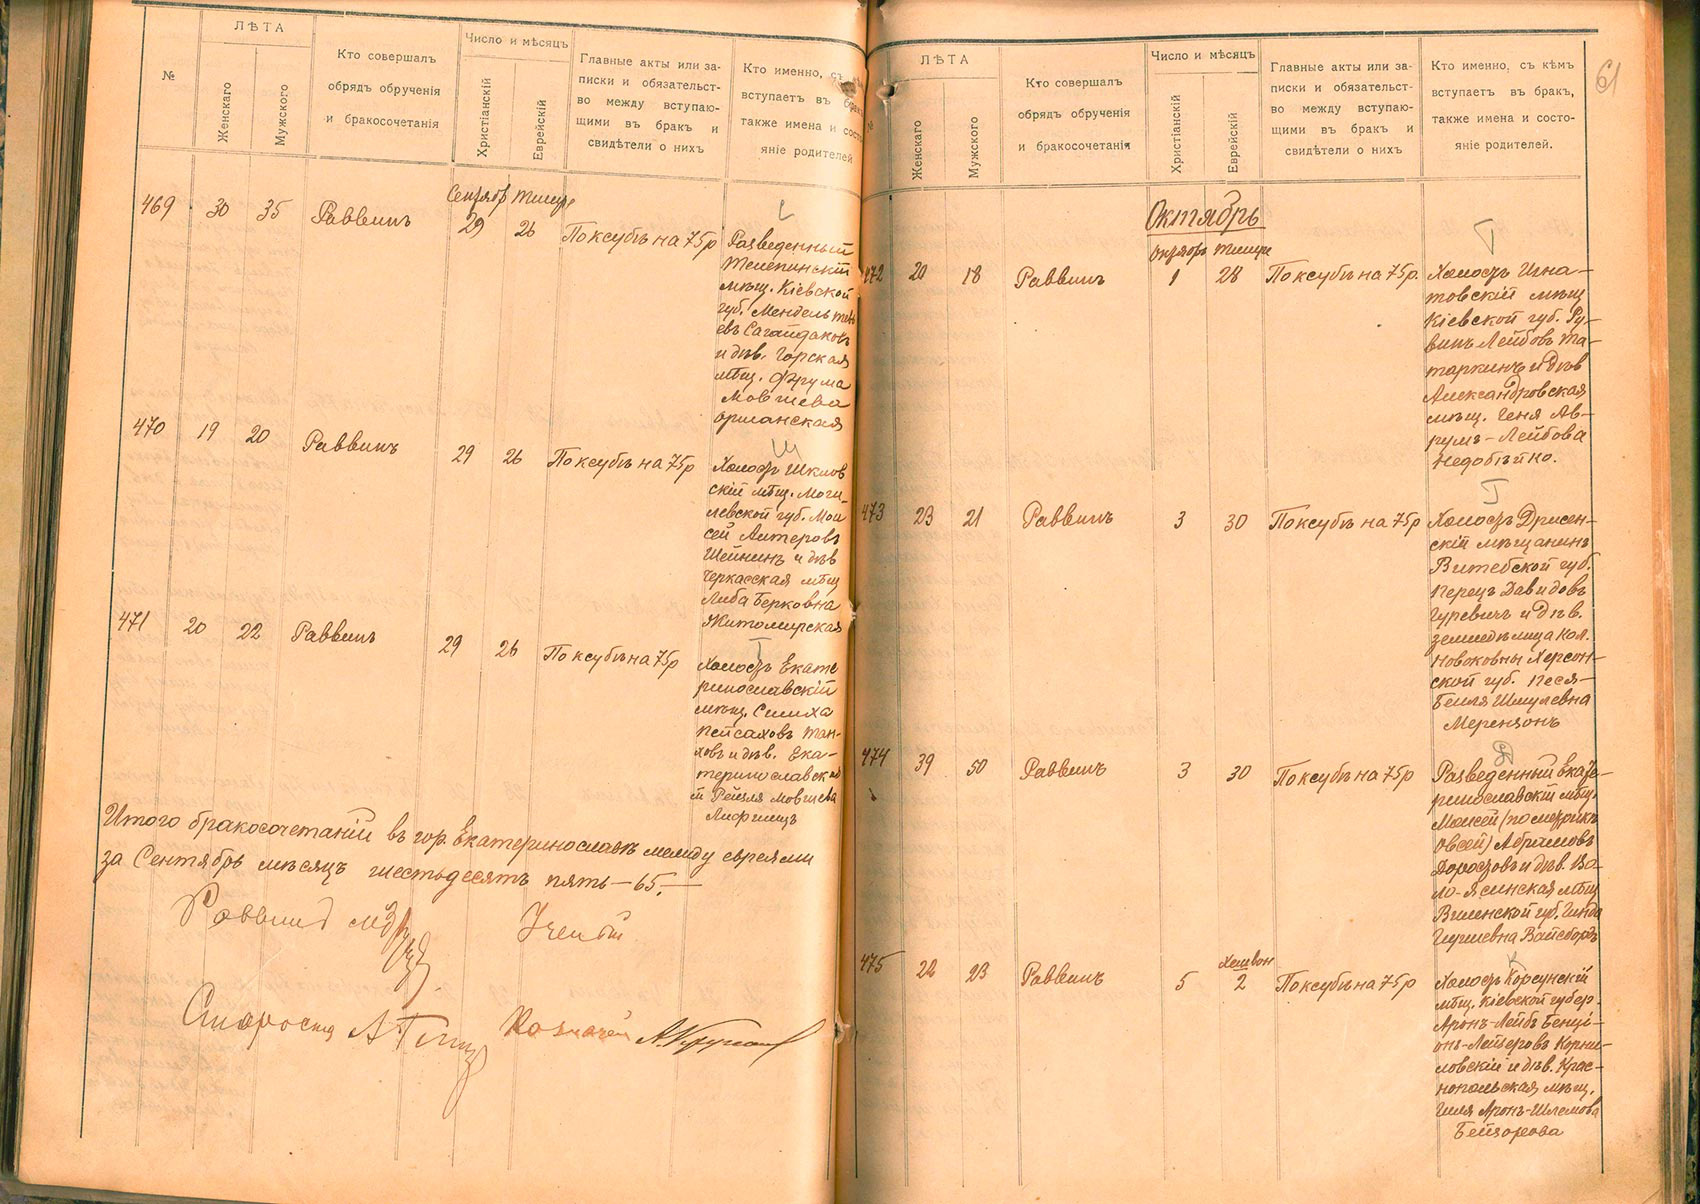 №
ЛѢТА
Женскаго
Мужского
Кто совершалъ
обрядъ обрученія
и бракосочетанія
Число и мѣсяцъ
Христіанскій
Еврейскій
Главные акты или за-
писки и обязательст-
во между вступаю-
щими въ бракъ и
свидѣтели о нихъ
Кто именно, съ
вступаетъ въ бракъ
также имена и состо-
яніе родителей
469 30 35 Раввинъ
Сентябр Тишре
29 26 По ксубѣ на 75 р
Разведенный
Телепинскій
мѣщ. Кіевской
губ. Мендель
евъ Сагайдаковъ
и дѣв. Горская
мѣщ. Фрума
Мовшева
Оршанская
470 19 20 Раввинъ 29 26 По ксубѣ на 75 р
Ш
Холостъ Шклов
скій мѣщ. Моги-
левской губ. Мои
сей Алтеровъ
Шейнинъ и дѣв
Черкасская мѣщ
Либа Берковна
Житомирская
471 20 22 Раввинъ 29 26 По ксубѣ на 75 р
Т
Холостъ Екате
ринославскій
мѣщ. Симха
Пейсаховъ Тан-
ховъ и дѣв. Ека-
теринославска
й Рейзля Мовшева
Лифшицъ
Итого бракосочетаній въ гор. Екатеринославѣ между евреями
за Сентябрь мѣсяцъ шестьдесятъ пять — 65. —
Раввинъ
Ученый
Староста
Казначей
61
№
ЛѢТА
Женскаго
Мужского
Кто совершалъ
обрядъ обрученія
и бракосочетанія
Число и мѣсяцъ
Христіанскій
Еврейскій
Главные акты или за-
писки и обязательст-
во между вступаю-
щими въ бракъ и
свидѣтели о нихъ
Кто именно, съ кѣмъ
вступаетъ въ бракъ,
также имена и состо-
яніе родителей.
Октябрь
Октябрь Тишре
472 20 18 Раввинъ 1 28 По ксубѣ на 75 р.
Т
Холостъ Игна-
товскій мѣщ
Кіевской губ. Ру-
винъ Лейбовъ Та-
таркинъ и дѣв
Александровская
мѣщ. Геня Ав-
румъ-Лейбова
Недобѣйно.
473 23 21 Раввинъ 3 30 По ксубѣ на 75 р
Г
Холостъ Дрисен-
скій мѣщанинъ
Витебской губ.
Перецъ Давидовъ
Гуревичъ и дѣв.
земледѣлица кол.
Новоковны Херсон-
ской губ. Песя-
Бейля Шмулевна
Мерензонъ
474 39 50 Раввинъ 3 30 По ксубѣ на 75 р
Д
Разведенный Екате-
ринославскій мѣщ.
Моисей (по метрикѣ
Овсей) Абрамовъ
Доростовъ и дѣв. Во-
ло-жинская мѣщ
Виленской губ. Гинда
Вайсбордъ
475 22 23 Раввинъ 5
Хешвон
2 По ксубѣ на 75 р
К
Холостъ Корсунскій
мѣщ. Кіевской губер.
Аронъ-Лейбъ Бенці-
онъ-Лейзеровъ Корни-
ловскій и дѣв. Крас-
нопольская мѣщ.
Аронъ-Шлемова